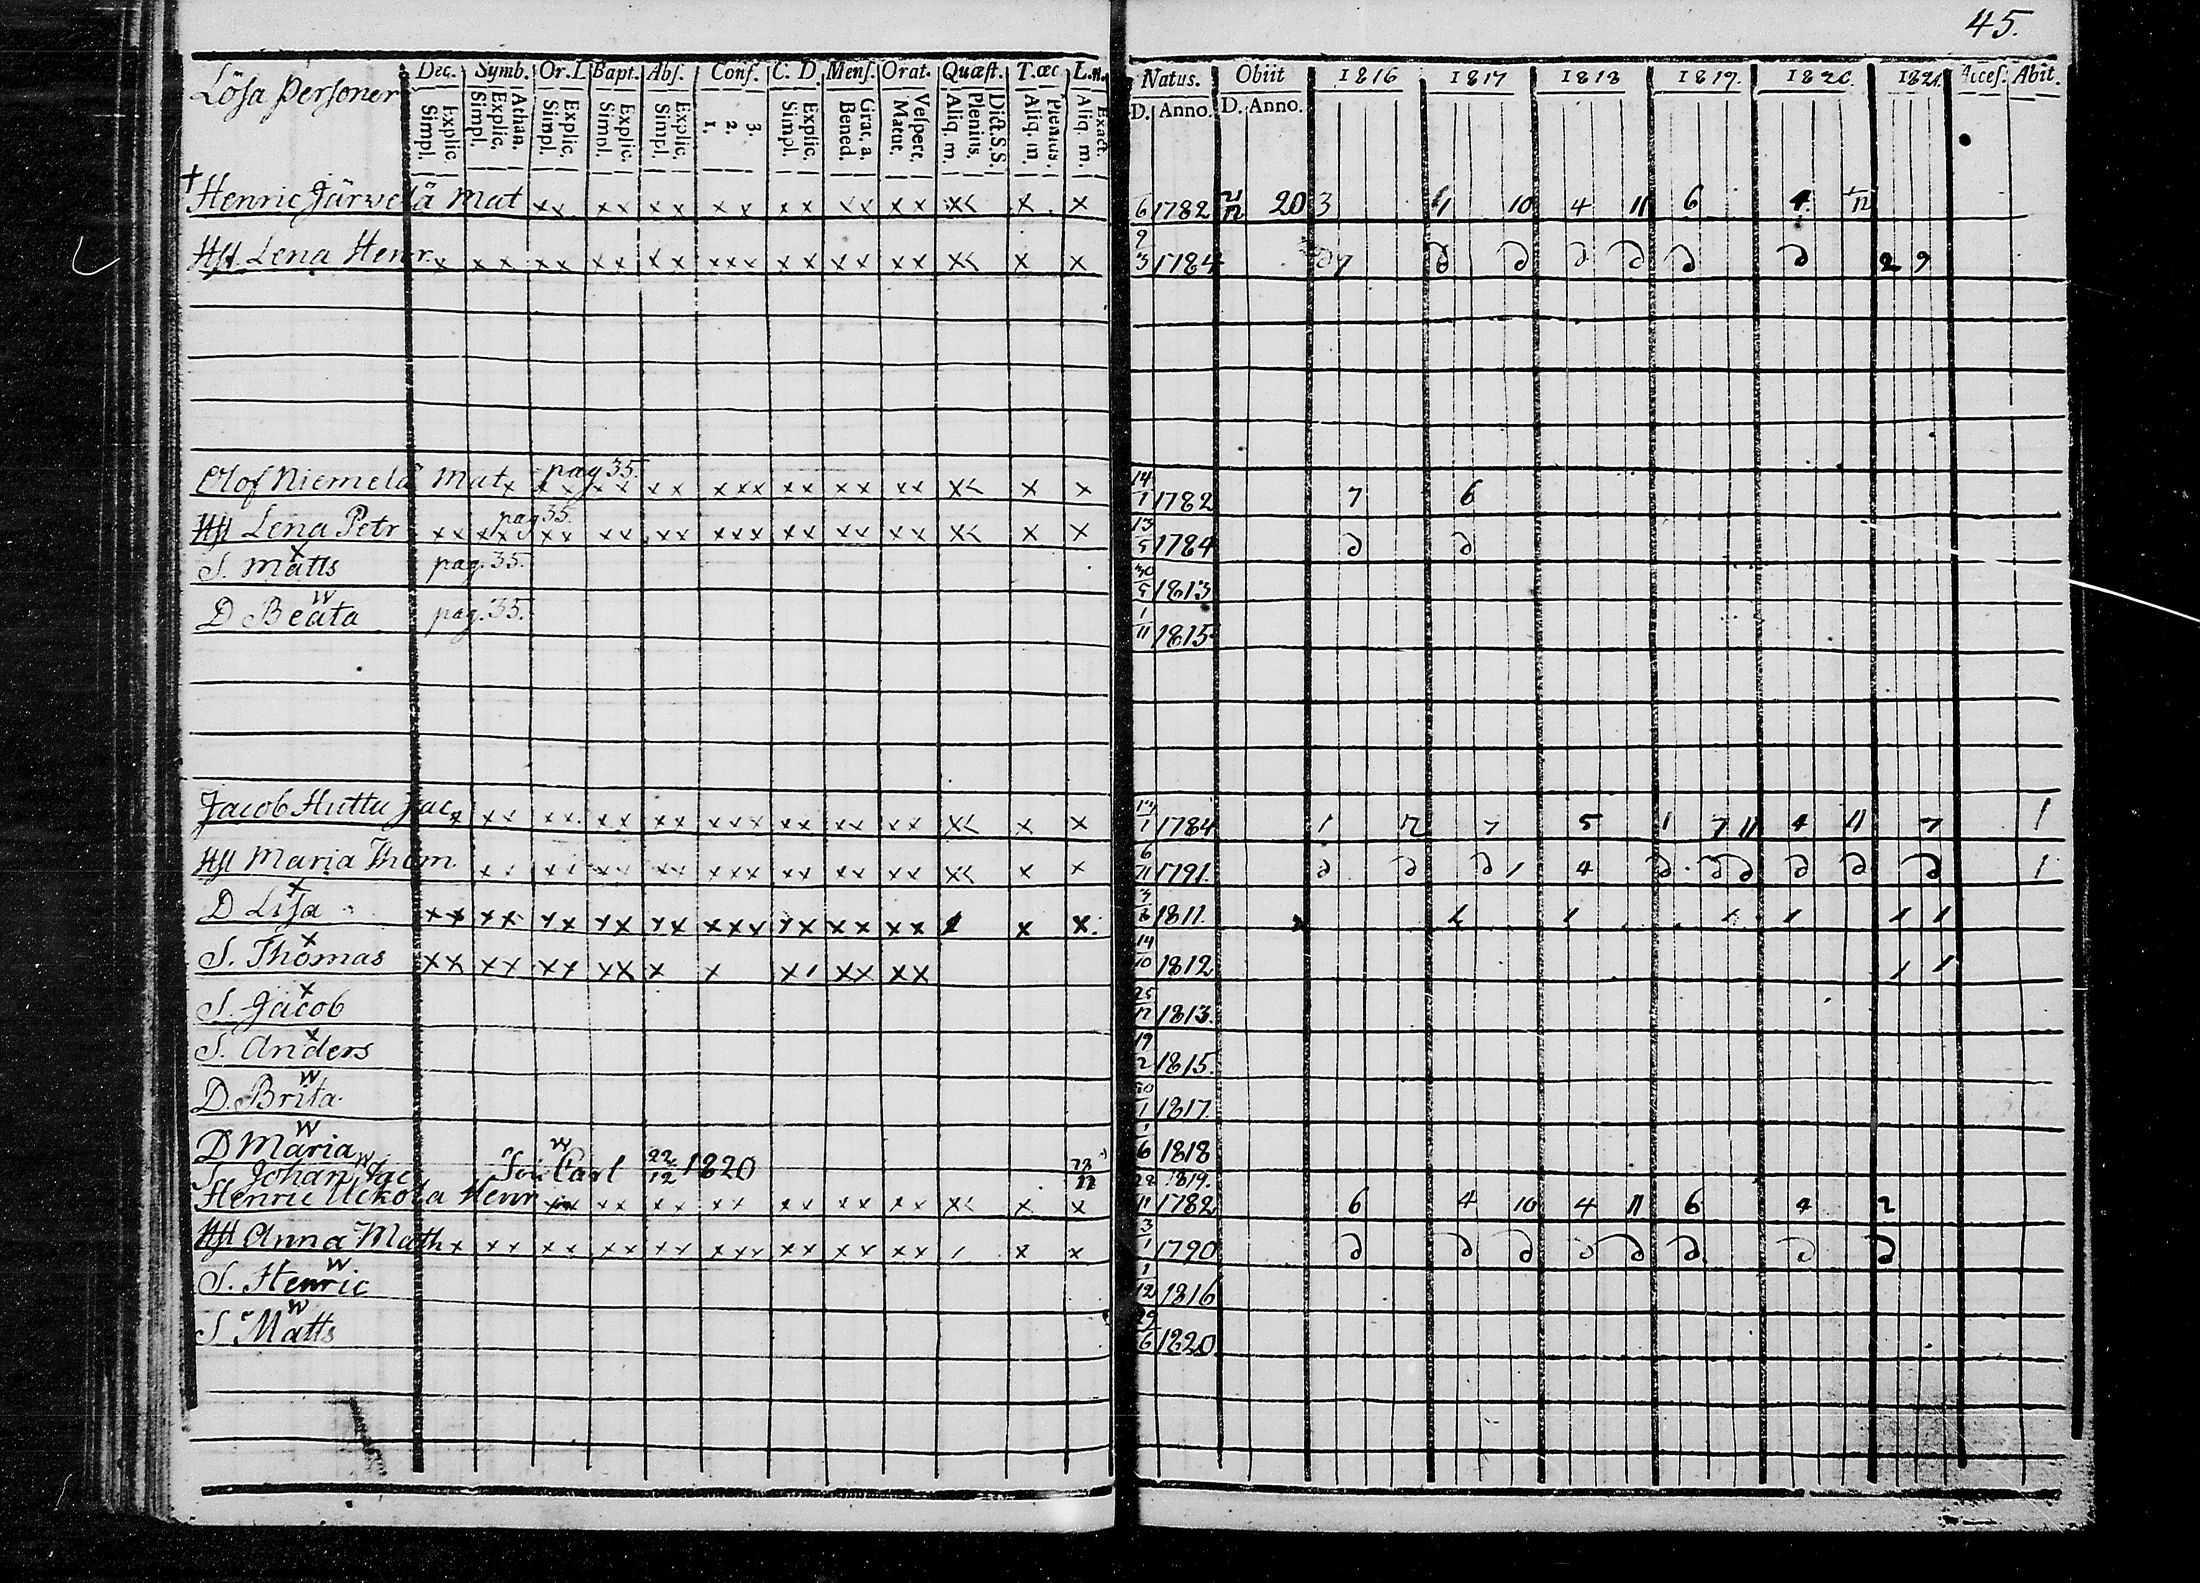 45.
Lösa Personer Dec. Symb. Or. D. Bapt. Abs. Conf. C. D. Mens. Orat. Quæst. T. œc L. n. Natus. Obiit 1816 1817 1818 1819. 1820. 1821. Acces. Abit.
Simpl. Explic. Simpl. Explic. Athan. Simpl. Explic. Simpl. Explic. Simpl. Explic. 1. 2. 3. Simpl. Explic. Bened. Grat. a. Matut. Vespert. Aliq. m. Plenius. Dict. S. S. Aliq. m. Plenius. Aliq. m. Exact. D. Anno. D. Anno.
† Henric Järvelä Mat x x x x x x x x x x x x x x x< x x 6 1782 20 3 10 4 11 6 4
Hst. Lena Henr. x x x x x x x x x x x x x x x x x x x< x x 9/3 1784 D 7 D D D D D D 2 9
Olof Niemelä Mat x pag 35. x x x x x x x x x x x x x x x x< x x 14/1 1782 7 6
Hst Lena Petr x x x x x pag 35. x x x x x x x x x x x x x x x x< x x 13/5 1784 D D
S. Matts x pag. 35. 30/5 1813
D Beata w pag. 35. 1/11 1815
Jacob Huttu Jac x x x x x x x x x x x x x x x x x x x< x x 1784 1 12 7 5 1 7 11 4 11 7 1
Hst Maria Thom. x x x x x x x x x x x x x x x x x x< x x 6/11 1791. D D D 1 4 D D D D D D 1
D Lisa x x x x x x x x x x x x x x x x x x x x x x 1811.
S. Thomas x x x x x x x x x x x x 1 x x x x 14/10 1812
S. Jacob x 25/12 1813.
S. Anders x 19/2 1815.
D. Brita w 1817.
D Maria w 1/6 1818
S. Johan Jac w Son Carl w 22/12 1820 1819.
Henric Uckola Henr x x x x x x x x x x x x x x x< x x 1782 6 4 10 4 11 6 4 2
Hst Anna Math x x x x x x x x x x x x x x x x x x / x x 3/1 1790 D D D D D D D D
S. Henric w 1/12 1816
S Matts w 29/6 1820.